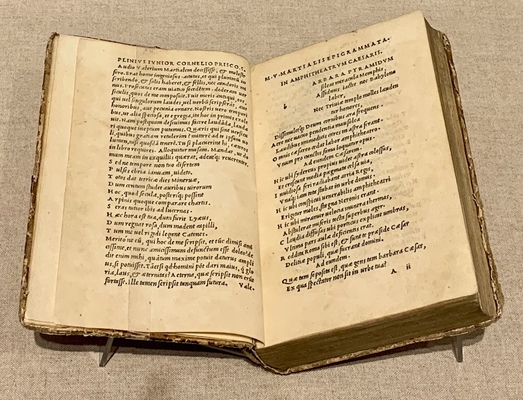 PLINIVS IVNIOR CORNELIO PRISCO.S.
Audio Valerium Martialem decessisse, & moleste
fero. Erat homo ingeniosus, acutus, et qui plurimum in
scribendo, & salis haberet, & fellis, nec candoris mi
nus. Prosecutus eram uiatico secedentem. dederam
uersiculis, quos de me composuit. Fuit moris antiqui, eos,
qui uel singulorum laudes, uel urbium scripserant,
aut honoribus, aut pecunia ornare. Nostris uero tempori
bus, ut alia speciosa, et egregia, ita hoc in primis exole
uit. Nam postquam desiimus facere laudanda, laudari
quoque ineptum putamus. Quaeris qui sint uersiculi,
quibus gratiam
num, nisi quosdam Tu si placuerint hi, caeteros
in libro requires. Alloquitur musam. Mandat, ut do
mum meam in exquiliis quaerat, adeat reuerenter
S ed ne tempore non tuo disertam
P ulses ebria ianuam, uideto.
T otos dat tetricae dies Mineruae,
D um centum studet auribus uirorum
H oc, quod secula, posteriq; possint
A rpinis quoque comparare chartis.
S eras tutior ibis ad lucernas.
H aec hora est tua, dum furit Lyaeus,
D um regnat rosa, dum madent capilli,
T um me uel rigidi legant Catones.
Merito ne eum, qui hoc de me scripsit, et tunc dimisi ami
cissime, & nunc amicissimum defunctum esse doleo?
dedit enim mihi, quantum maxime potuit daturus ampli
us, si potuisset. Tametsi quid homini pot dari maius, quam glo
ria, laus, & aeternitas? At non erunt aeterna, quae scripsit non erunt
fortasse. ille tamen scripsit tanquam futura. Vale.
M.V.MARTIALIS EPIGRAMMATA.
IN AMPHITHEATRVM CAESARIS.
b
ARBARA PYRAMIDVM
sileat miracula Memphis,
Assiduus iactet nec Babylona
labor,
Nec Triuiae templo molles laudentur
honores,
Dissimuletq; Deum cornibus ara frequens.
Aere nec uacuo pendentia mausolea
Laudibus immodicis cares in astra ferant.
Omnis caesareo cedat labor amphitheatro.
Vnum pro cunctis fama loquatur opus.
Ad Caesarem.
H ic ubi sidereus propius uidet astra colossus,
Et crescunt media pegmata celsa uia,
I nuidiosa feri radiabant atria Regis,
V naq; iam tota stabat in urbe domus.
H ic ubi conspicui uenerabilis amphitheatri
E rigitur moles, stagna Neronis erant.
H ic ubi miramur uelocia munera thermas,
A bstulerat miseris tecta superbus ager.
C laudia diffusas ubi porticus explicat umbras,
V ltima pars aulae deficientis erat.
R eddita Roma sibi est, & sunt te praeside Caesar
Delitiae populi, quae fuerant domini.
Ad eundem.
Quae tam seposita est, quae gens tam barbara Caesar,
Ex qua spectator non sit in urbe tua?
A ii